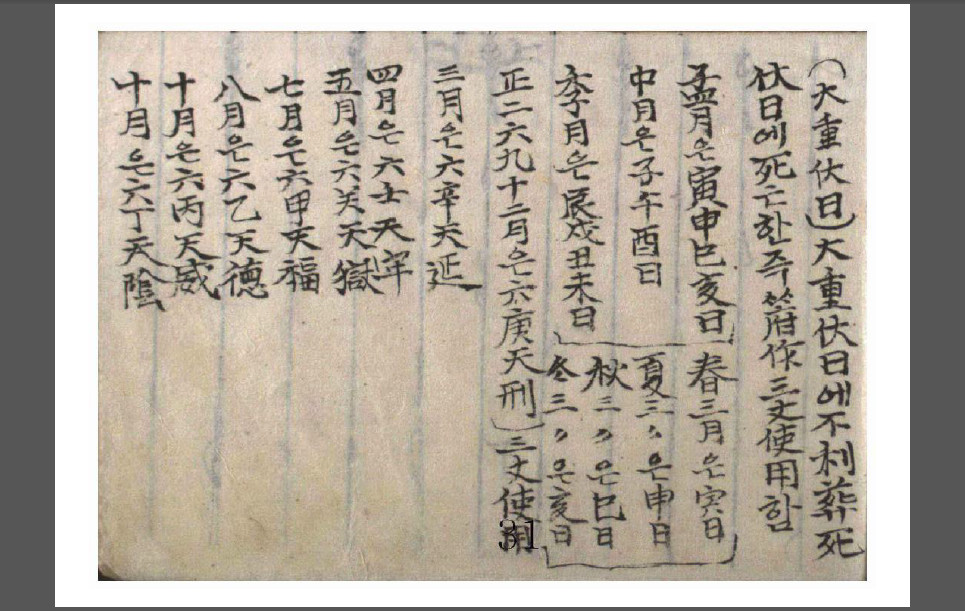 (大重伏日) 大重伏日에不利葬死
伏日에死亡한즉 竹府作三丈使用함
孟月은寅申巳亥日
中月은子午酉日
季月은辰戌丑未日
春三月은寅日
夏三〃은申日
秋三〃은巳日
冬三〃은亥日
正二六九十二月은六庚天刑 三丈使用
三月은六辛天延
四月은六士天牢
五月은六关天獄
七月은六甲天福
八月은六乙天德
十月은六丙天威
十月은六丁天陰
31